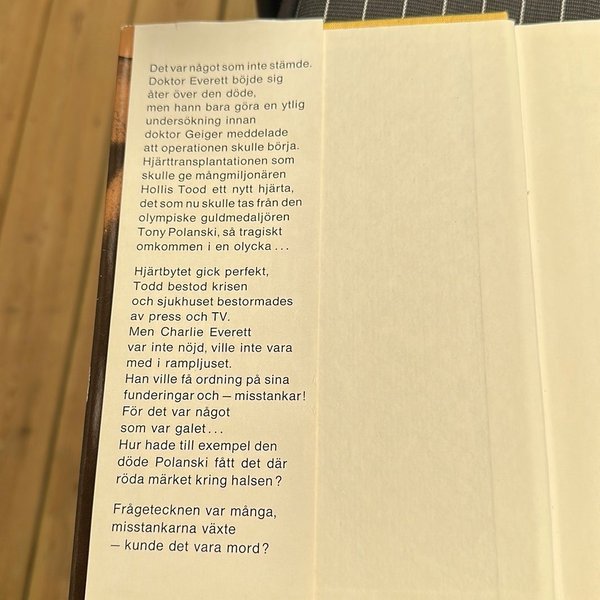 Det var något som inte stämde.
Doktor Everett böjde sig
åter över den döde,
men hann bara göra en ytlig
undersökning innan
doktor Geiger meddelade
att operationen skulle börja.
Hjärttransplantationen som
skulle ge mångmiljonären
Hollis Tood ett nytt hjärta,
det som nu skulle tas från den
olympiske guldmedaljören
Tony Polanski, så tragiskt
omkommen i en olycka ...

Hjärtbytet gick perfekt,
Todd bestod krisen
och sjukhuset bestormades
av press och TV.
Men Charlie Everett
var inte nöjd, ville inte vara
med i rampljuset.
Han ville få ordning på sina
funderingar och – misstankar!
För det var något
som var galet ...
Hur hade till exempel den
döde Polanski fått det där
röda märket kring halsen?

Frågetecknen var många,
misstankarna växte
– kunde det vara mord?